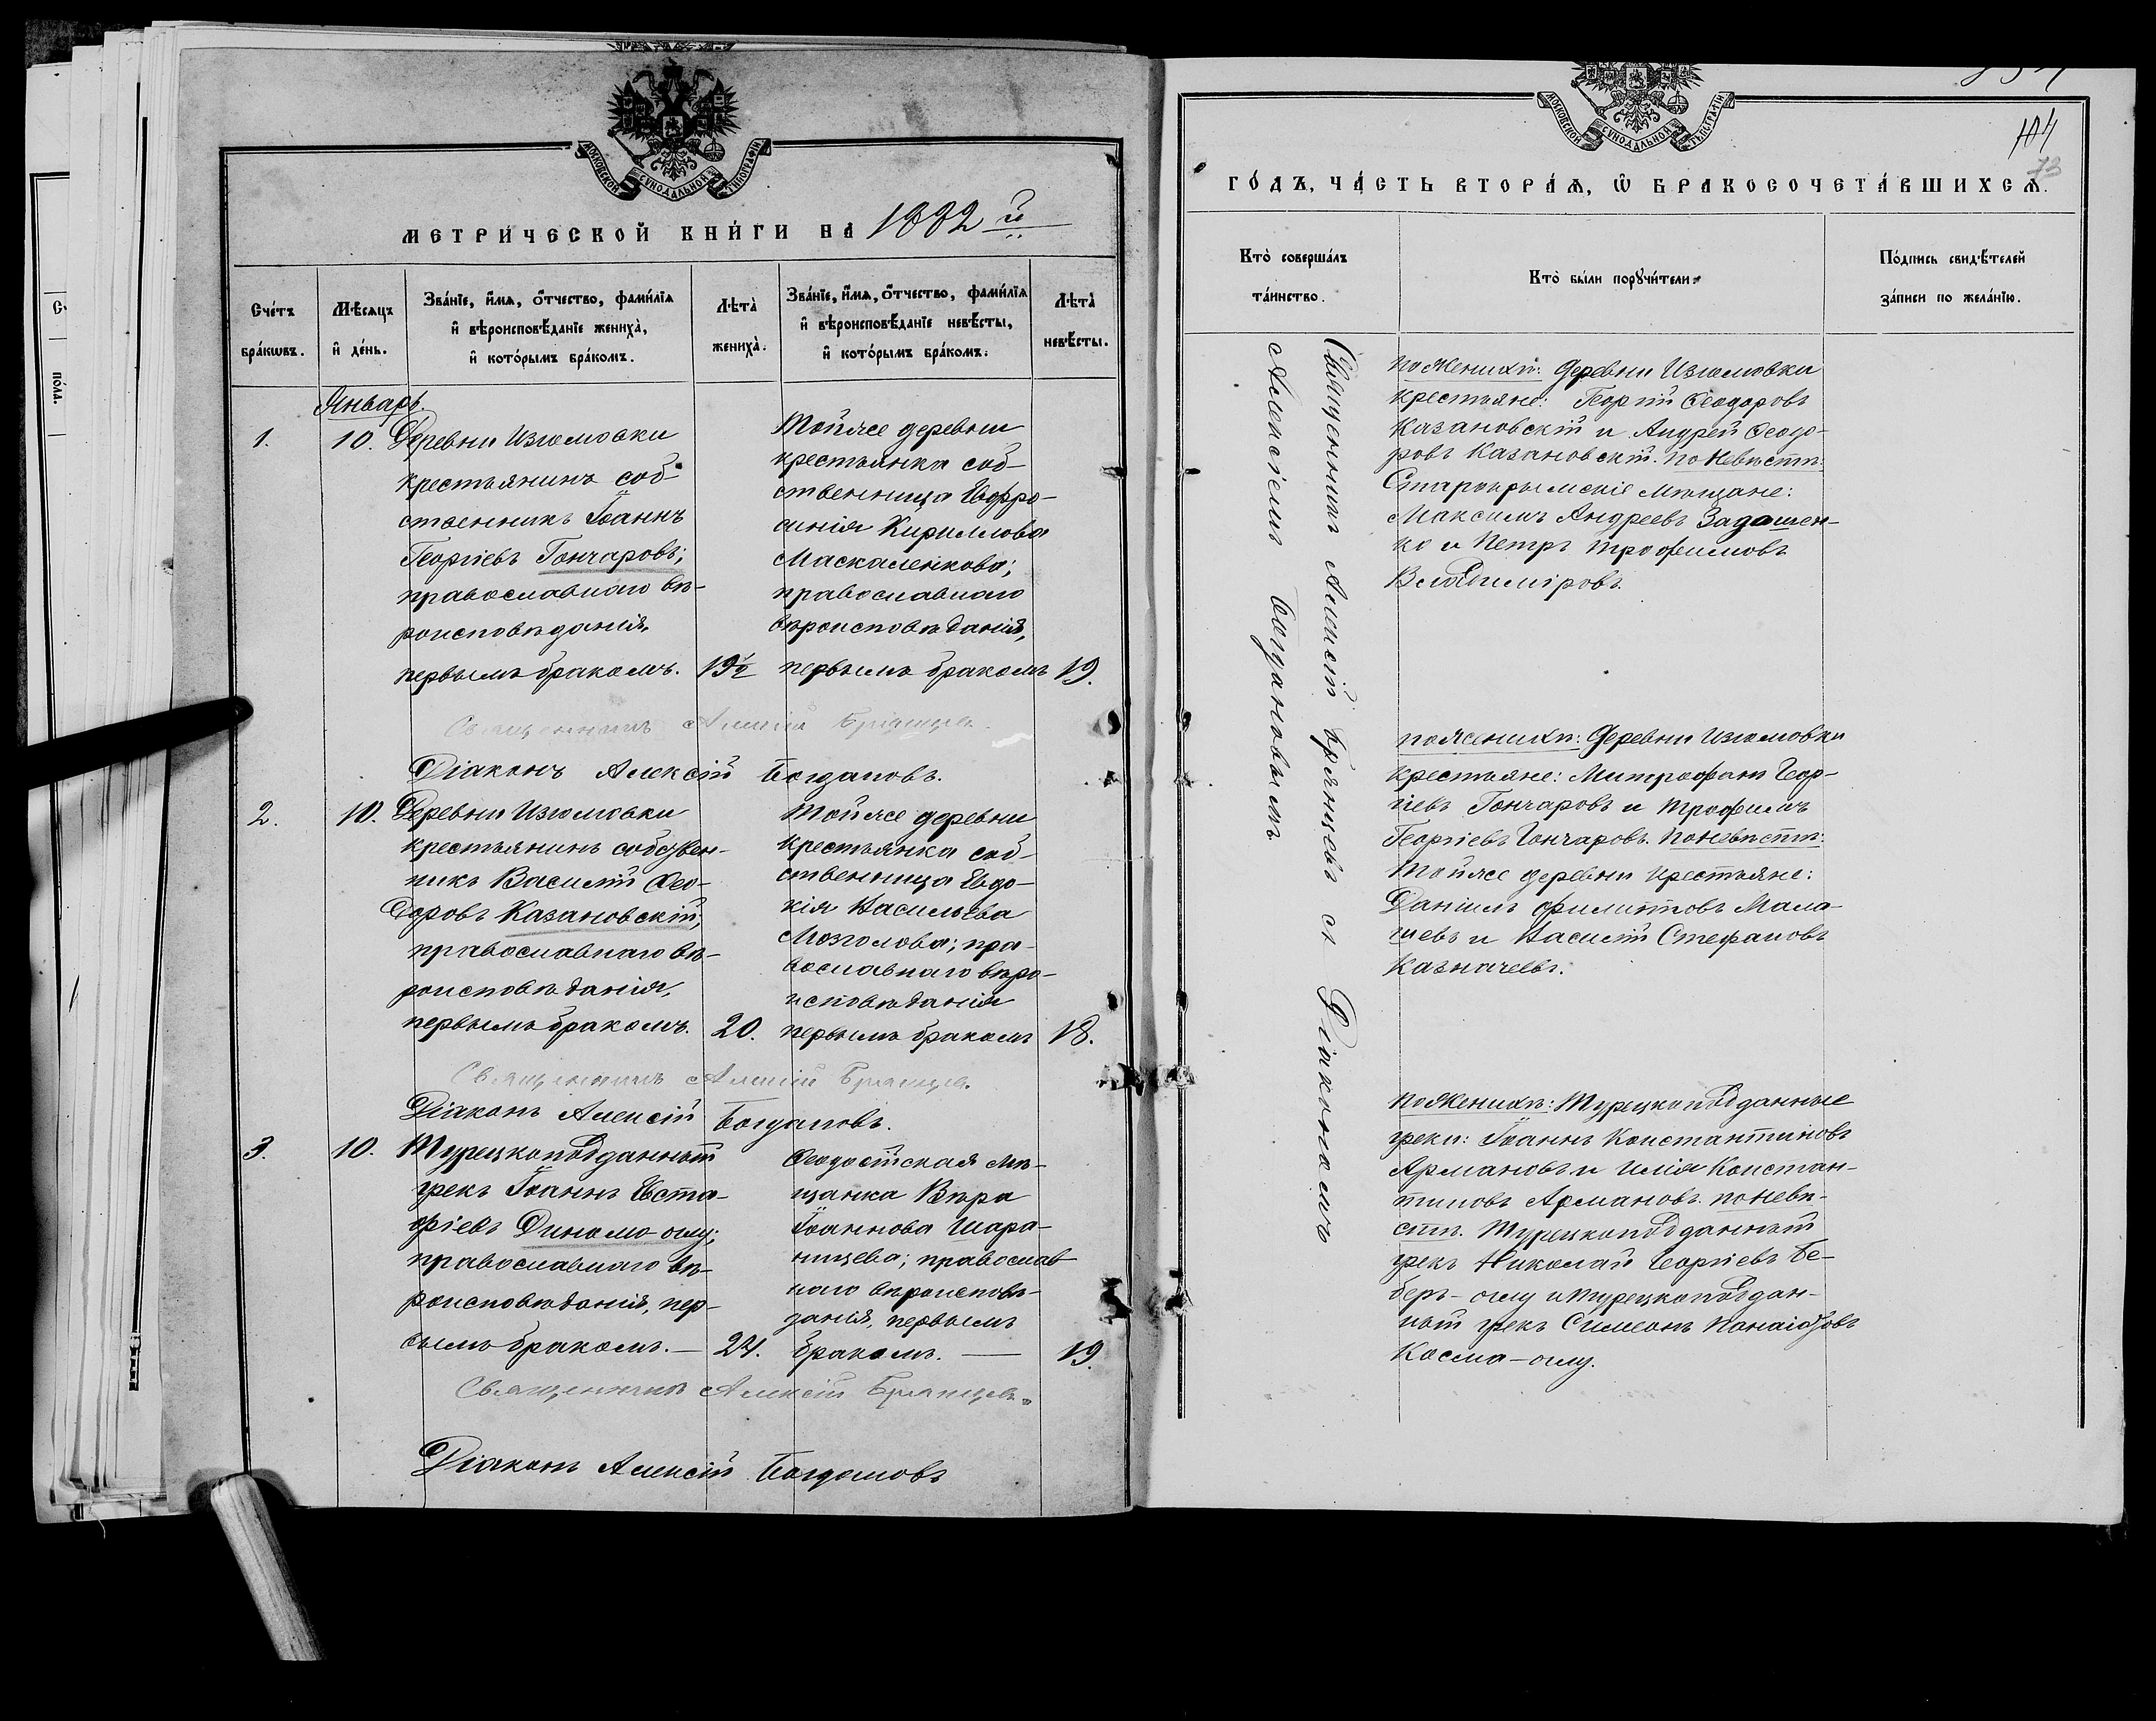 МОСКОВСКОЙ СѴНОДАЛЬНОЙ ТИПОГРАФІИ
МЕТРИ́ЧЕСКОЙ КНИ́ГИ НА 1882 й
Сче́тъ бра́кѡвъ.
Мѣ́сяцъ и҆ де́нь.
Зва́нїе, и҆́мѧ, ѻ҆́тчество, фами́лїѧ
и҆ вѣроисповѣ́данїе жениха̀,
и҆ кото́рымъ бра́комъ.
Лѣ́та̀ жениха̀.
Зва́нїе, и҆́мѧ, ѻ҆́тчество, фами́лїѧ
и҆ вѣроисповѣ́данїе невѣ́сты,
и҆ кото́рымъ бра́комъ.
Лѣ́та̀ невѣ́сты.
Январь.
1.
10.
Деревни Изюмовки
крестьянинъ соб-
ственникъ Іоаннъ
Георгіевъ Гончаровъ;
православнаго вѣ-
роисповѣданія,
первымъ бракомъ.
19½
Тойже деревни
крестьянка соб-
ственница Евфро-
синія Кириллова
Маскаленкова;
православнаго
вѣроисповѣданія,
первымъ бракомъ
19.
Священникъ Алексій Брянцевъ.
Діаконъ Алексій Богдановъ.
2.
10.
Деревни Изюмовки
крестьянинъ собствен-
никъ Василій Ѳео-
доровъ Казановскій;
православнаго вѣ-
роисповѣданія,
первымъ бракомъ.
20.
Тойже деревни
крестьянка соб-
ственница Евдо-
кія Васильева
Мозголова; пра-
вославнаго вѣро-
исповѣданія
первымъ бракомъ
18.
Священникъ Алексій Брянцевъ.
Діаконъ Алексій Богдановъ.
3.
10.
Турецкоподданный
грекъ Іоаннъ Евста-
фіевъ Динамо-оглу;
православнаго вѣ-
роисповѣданія, пер-
вымъ бракомъ.—
24.
Ѳеодосійская мѣ-
щанка Вѣра
Іоаннова Шара-
ницева; православ-
наго вѣроисповѣ-
данія, первымъ
бракомъ.—
19.
Священникъ Алексій Брянцевъ.
Діаконъ Алексій Богдановъ
МОСКОВСКОЙ СѴНОДАЛЬНОЙ ТИПОГРАФІИ
104
73
ГО́ДЪ, ЧА́СТЬ ВТОРА́Ѧ, Ѡ҆ БРАКОСОЧЕТА́ВШИХСѦ.
Кто̀ соверша́лъ
та́инство.
Кто̀ бы́ли порꙋчи́тели.
По́дпись свидѣ́телей
за́писи по жела́нїю.
Священникъ Алексій Брянцевъ съ Діакономъ
Алексіемъ Богдановымъ.
по женихѣ: Деревни Изюмовки
крестьяне: Георгій Ѳеодоровъ
Казановскій и Андрей Ѳеодо-
ровъ Казановскій. по невѣстѣ:
Старокрымскіе мѣщане:
Максимъ Андреевъ Задошен-
ко и Петръ Трофимовъ
Владиміровъ.
по женихѣ: Деревни Изюмовки
крестьяне: Митрофанъ Геор-
гіевъ Гончаровъ и Трофимъ
Георгіевъ Гончаровъ. по невѣстѣ:
Тойже деревни крестьяне:
Даніилъ Филипповъ Мала-
шевъ и Василій Стефановъ
Казначеевъ.
по женихѣ: Турецкоподданные
греки: Іоаннъ Константиновъ
Армановъ и Илія Констан-
тиновъ Армановъ. по невѣ-
стѣ. Турецкоподданный
грекъ Николай Георгіевъ Бе-
беръ-оглу и турецкоподдан-
ный грекъ Симеонъ Панаіотовъ
Косма-оглу.